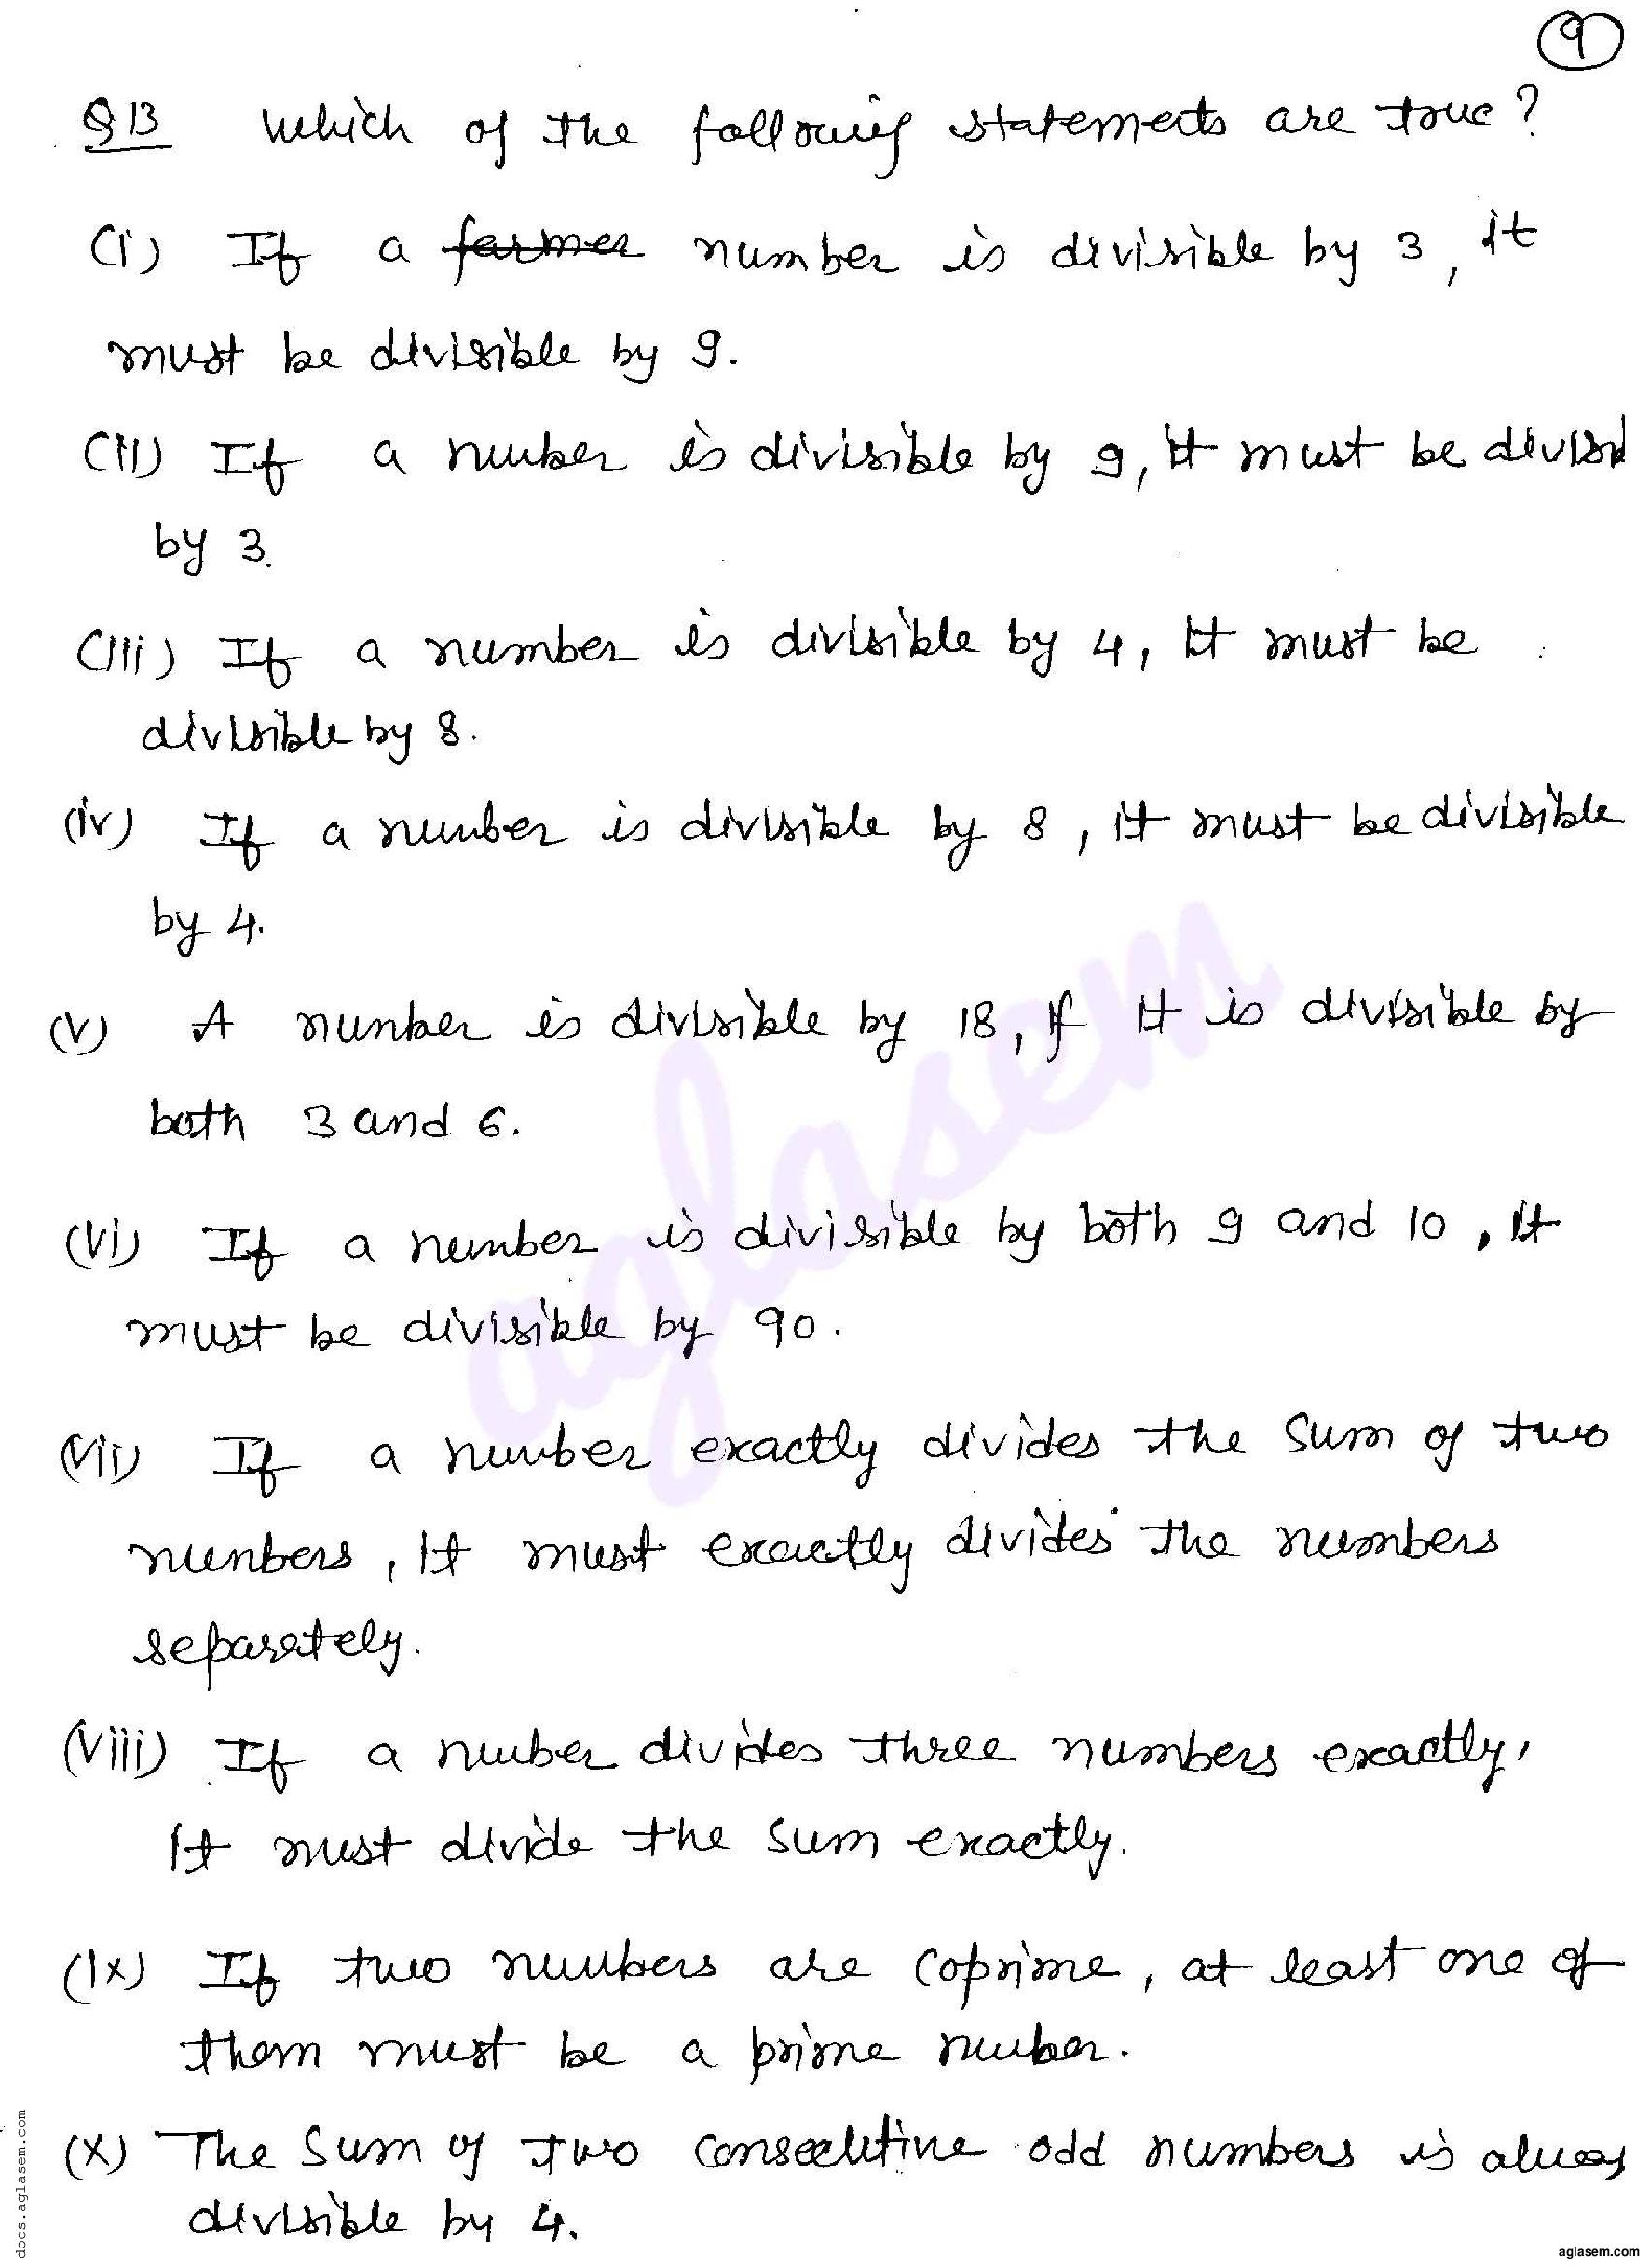 9
Q13 Which of the following statements are true?
(i) If a farmer number is divisible by 3, it
must be divisible by 9.
(ii) If a number is divisible by 9, it must be divisi
by 3.
(iii) If a number is divisible by 4, it must be
divisible by 8.
(iv) If a number is divisible by 8, it must be divisible
by 4.
(v) A number is divisible by 18, if it is divisible by
both 3 and 6.
(vi) If a number is divisible by both 9 and 10, it
must be divisible by 90.
(vii) If a number exactly divides the sum of two
numbers, it must exactly divides the numbers
separately.
(viii) If a number divides three numbers exactly,
it must divide the sum exactly.
(ix) If two numbers are coprime, at least one of
them must be a prime number.
(x) The sum of two consecutive odd numbers is always
divisible by 4.
aglasem
docs.aglasem.com
aglasem.com